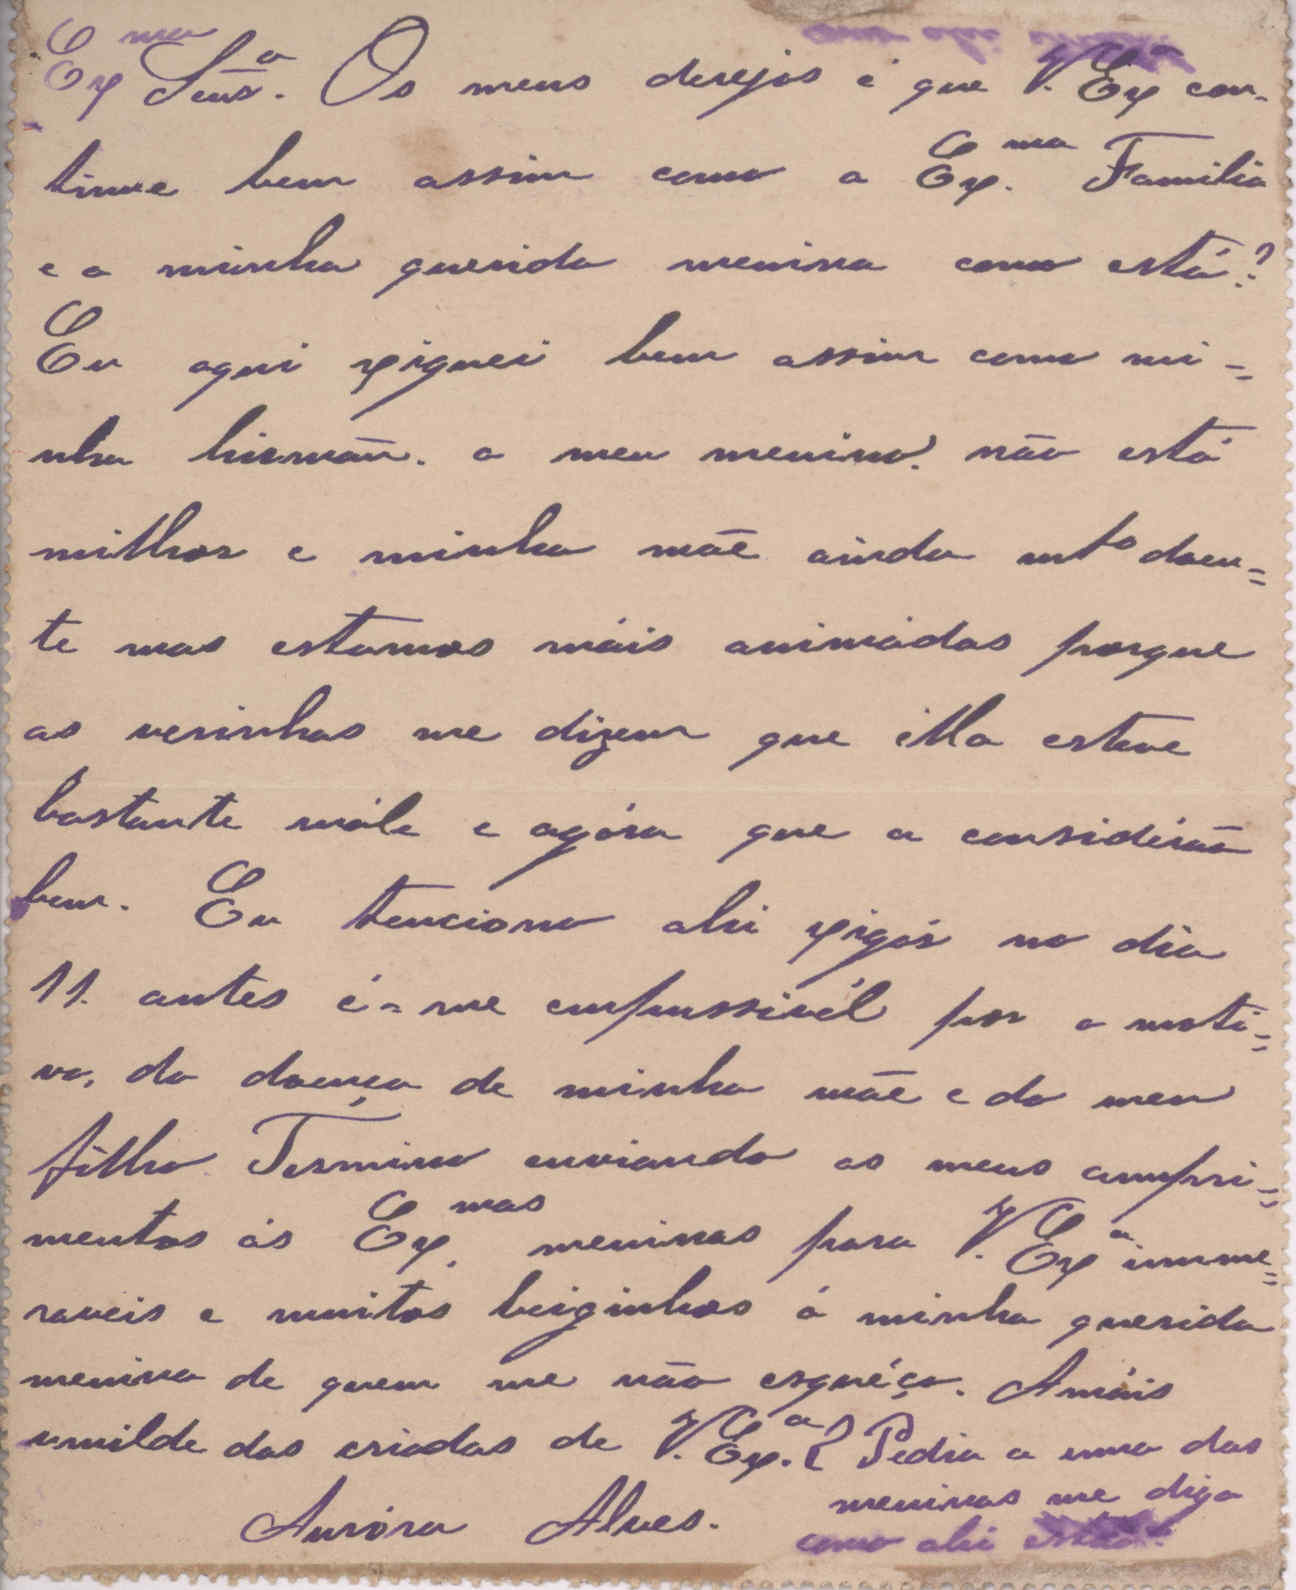 Ex.ma Senr.a. Os meus desejos é que V. Ex.a con-
tinue bem assim como a Ex.ma Familia
e a minha querida menina como está?
Eu aqui xiguei bem assim como mi=
nha hirmãn. o meu menino. não está
milhor e minha mãe ainda mt.o doen=
te mas estamos máis animádas porque
as vesinhas me dizem que illa esteve
bastante mále e agóra que a considérão
bem. Eu tenciono ahi xigár no dia
11. antes é-me impussivél por o moti=
vo, da doença de minha mãe e do meu
filho Termino enviando os meus cumpri=
mentos ás Ex.mas meninas para V. Ex.a inume=
raveis e muitos beiginhos á minha querida
menina de quem me não esquéço. A máis
umilde das criadas de V. Ex.a
Auróra Alves.
Pedia a uma das
meninas me diga
como ahi estão.